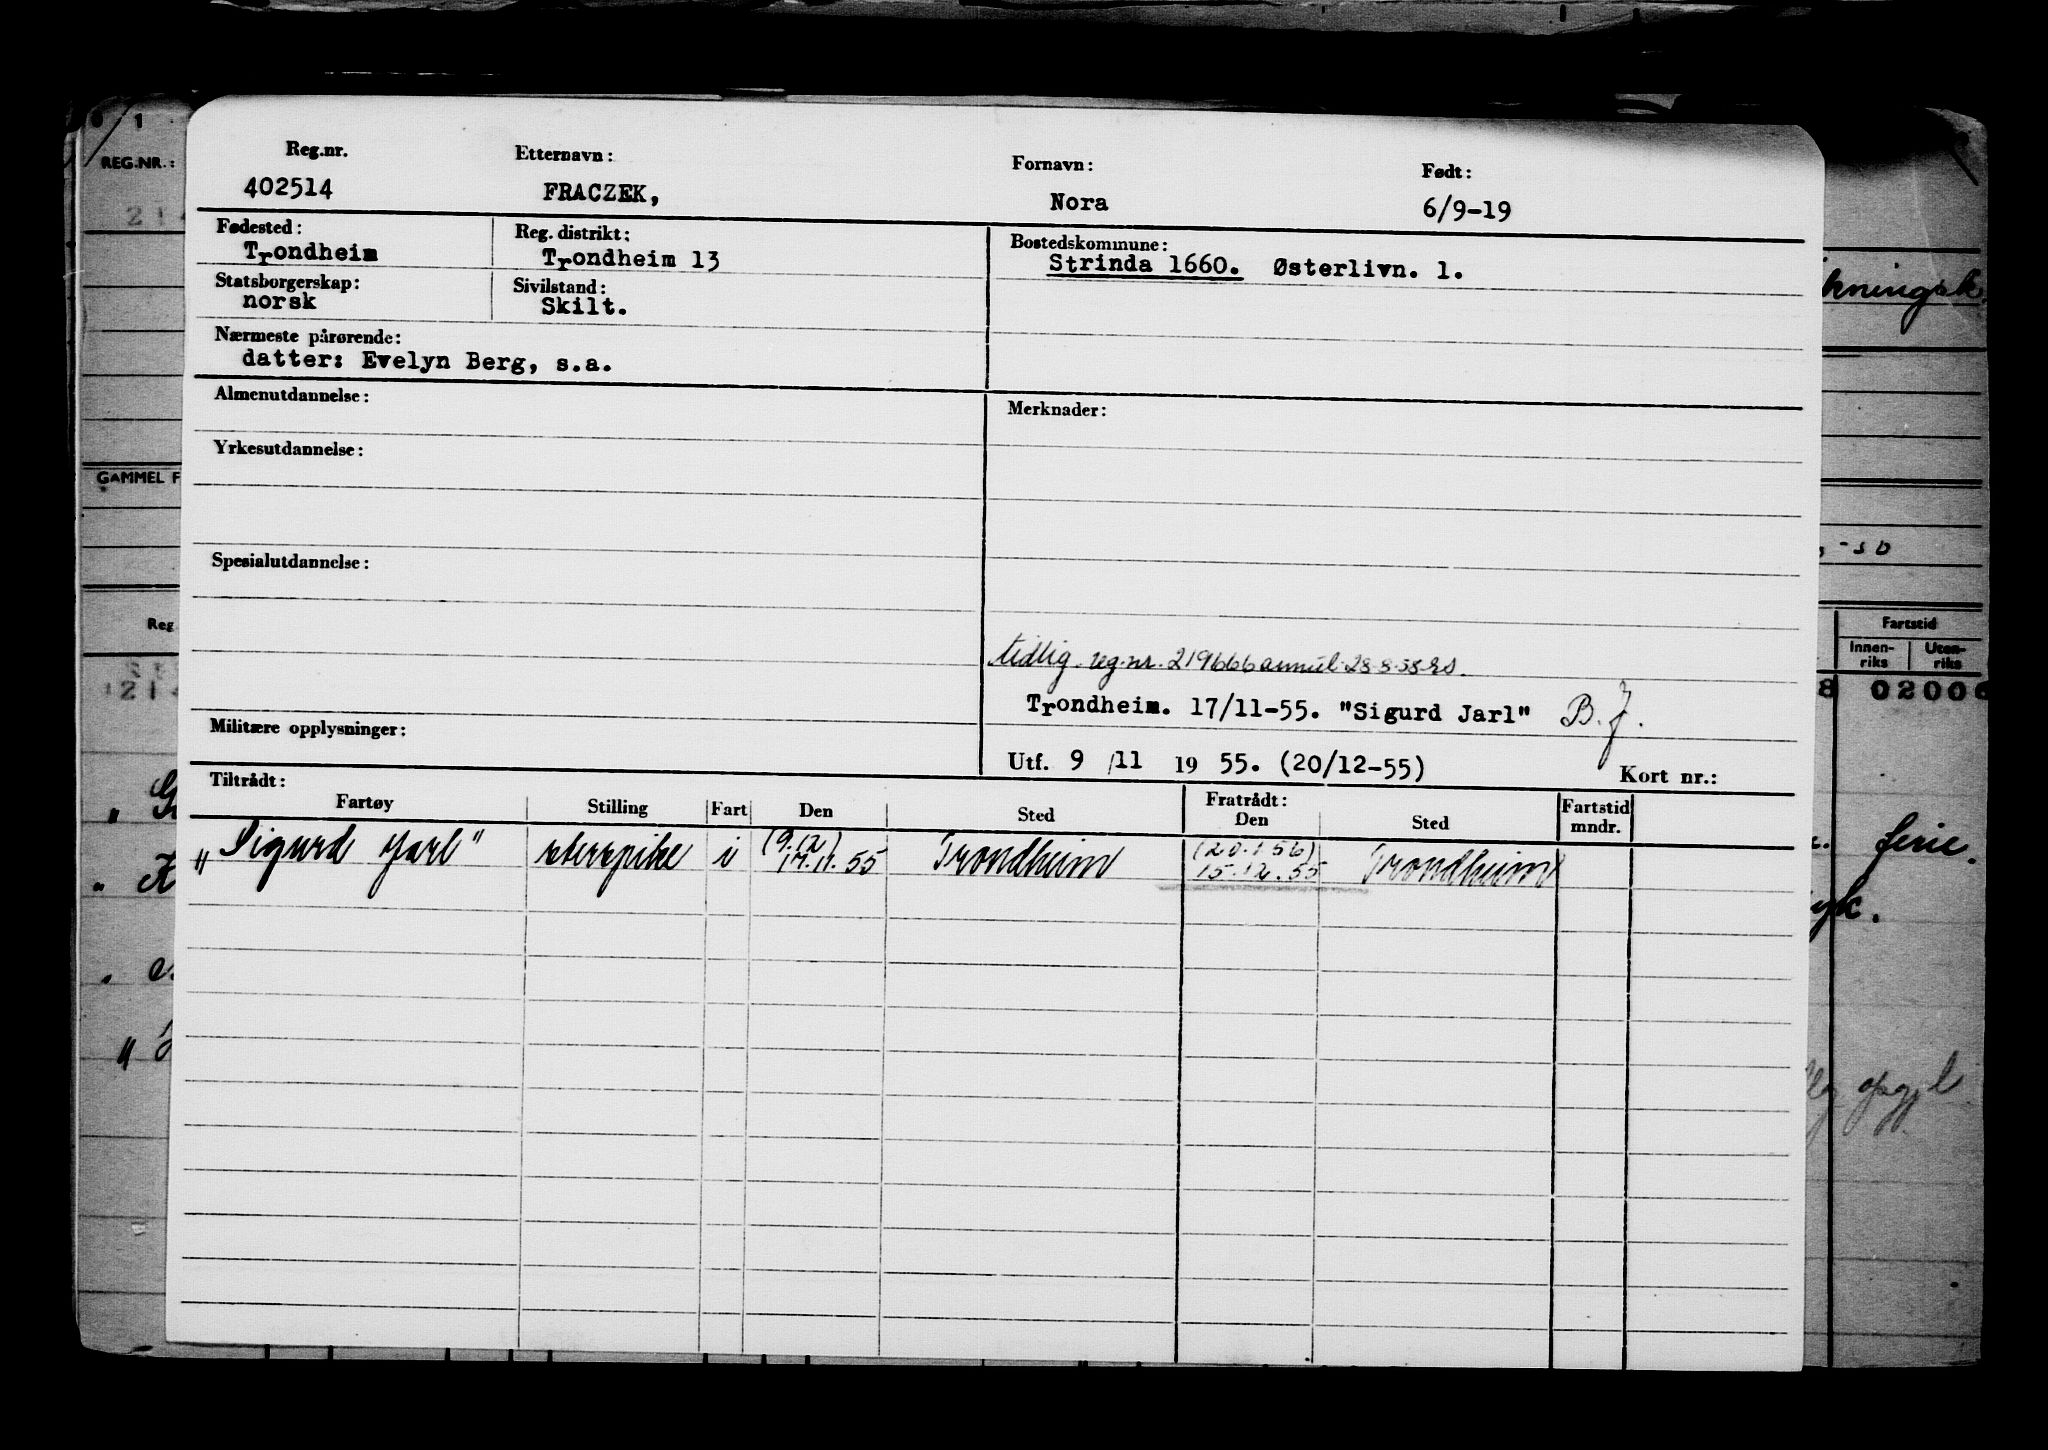 Reg.nr. Etternavn: Fornavn: Født:
402514 FRACZEK, Nora 6/9-19
Fødested: Reg. distrikt: Bostedskommune:
Trondheim Trondheim 13 Strinda 1660. Østerlivn. 1.
Statsborgerskap: Sivilstand:
norsk Skilt.
Nærmeste pårørende:
datter: Evelyn Berg, s.a.
Almenutdannelse: Merknader:
Yrkesutdannelse:
Spesialutdannelse:
tidlig reg.nr. 219666 annul. 28.8.58
Trondheim. 17/11-55. "Sigurd Jarl" B.J.
Militære opplysninger:
Utf. 9/11 1955. (20/12-55) Kort nr.:
Tiltrådt: Fratrådt:
Fartøy Stilling Fart Den Sted Den Sted Fartstid mndr.
(9.12) (20.1.56)
"Sigurd Jarl" i 17.11.55 Trondheim 15.12.55 Trondheim
REG.NR.:
GAMMEL F
Reg
-50
Fartstid
Innen-riks Uten-riks
8 02006
ferie.